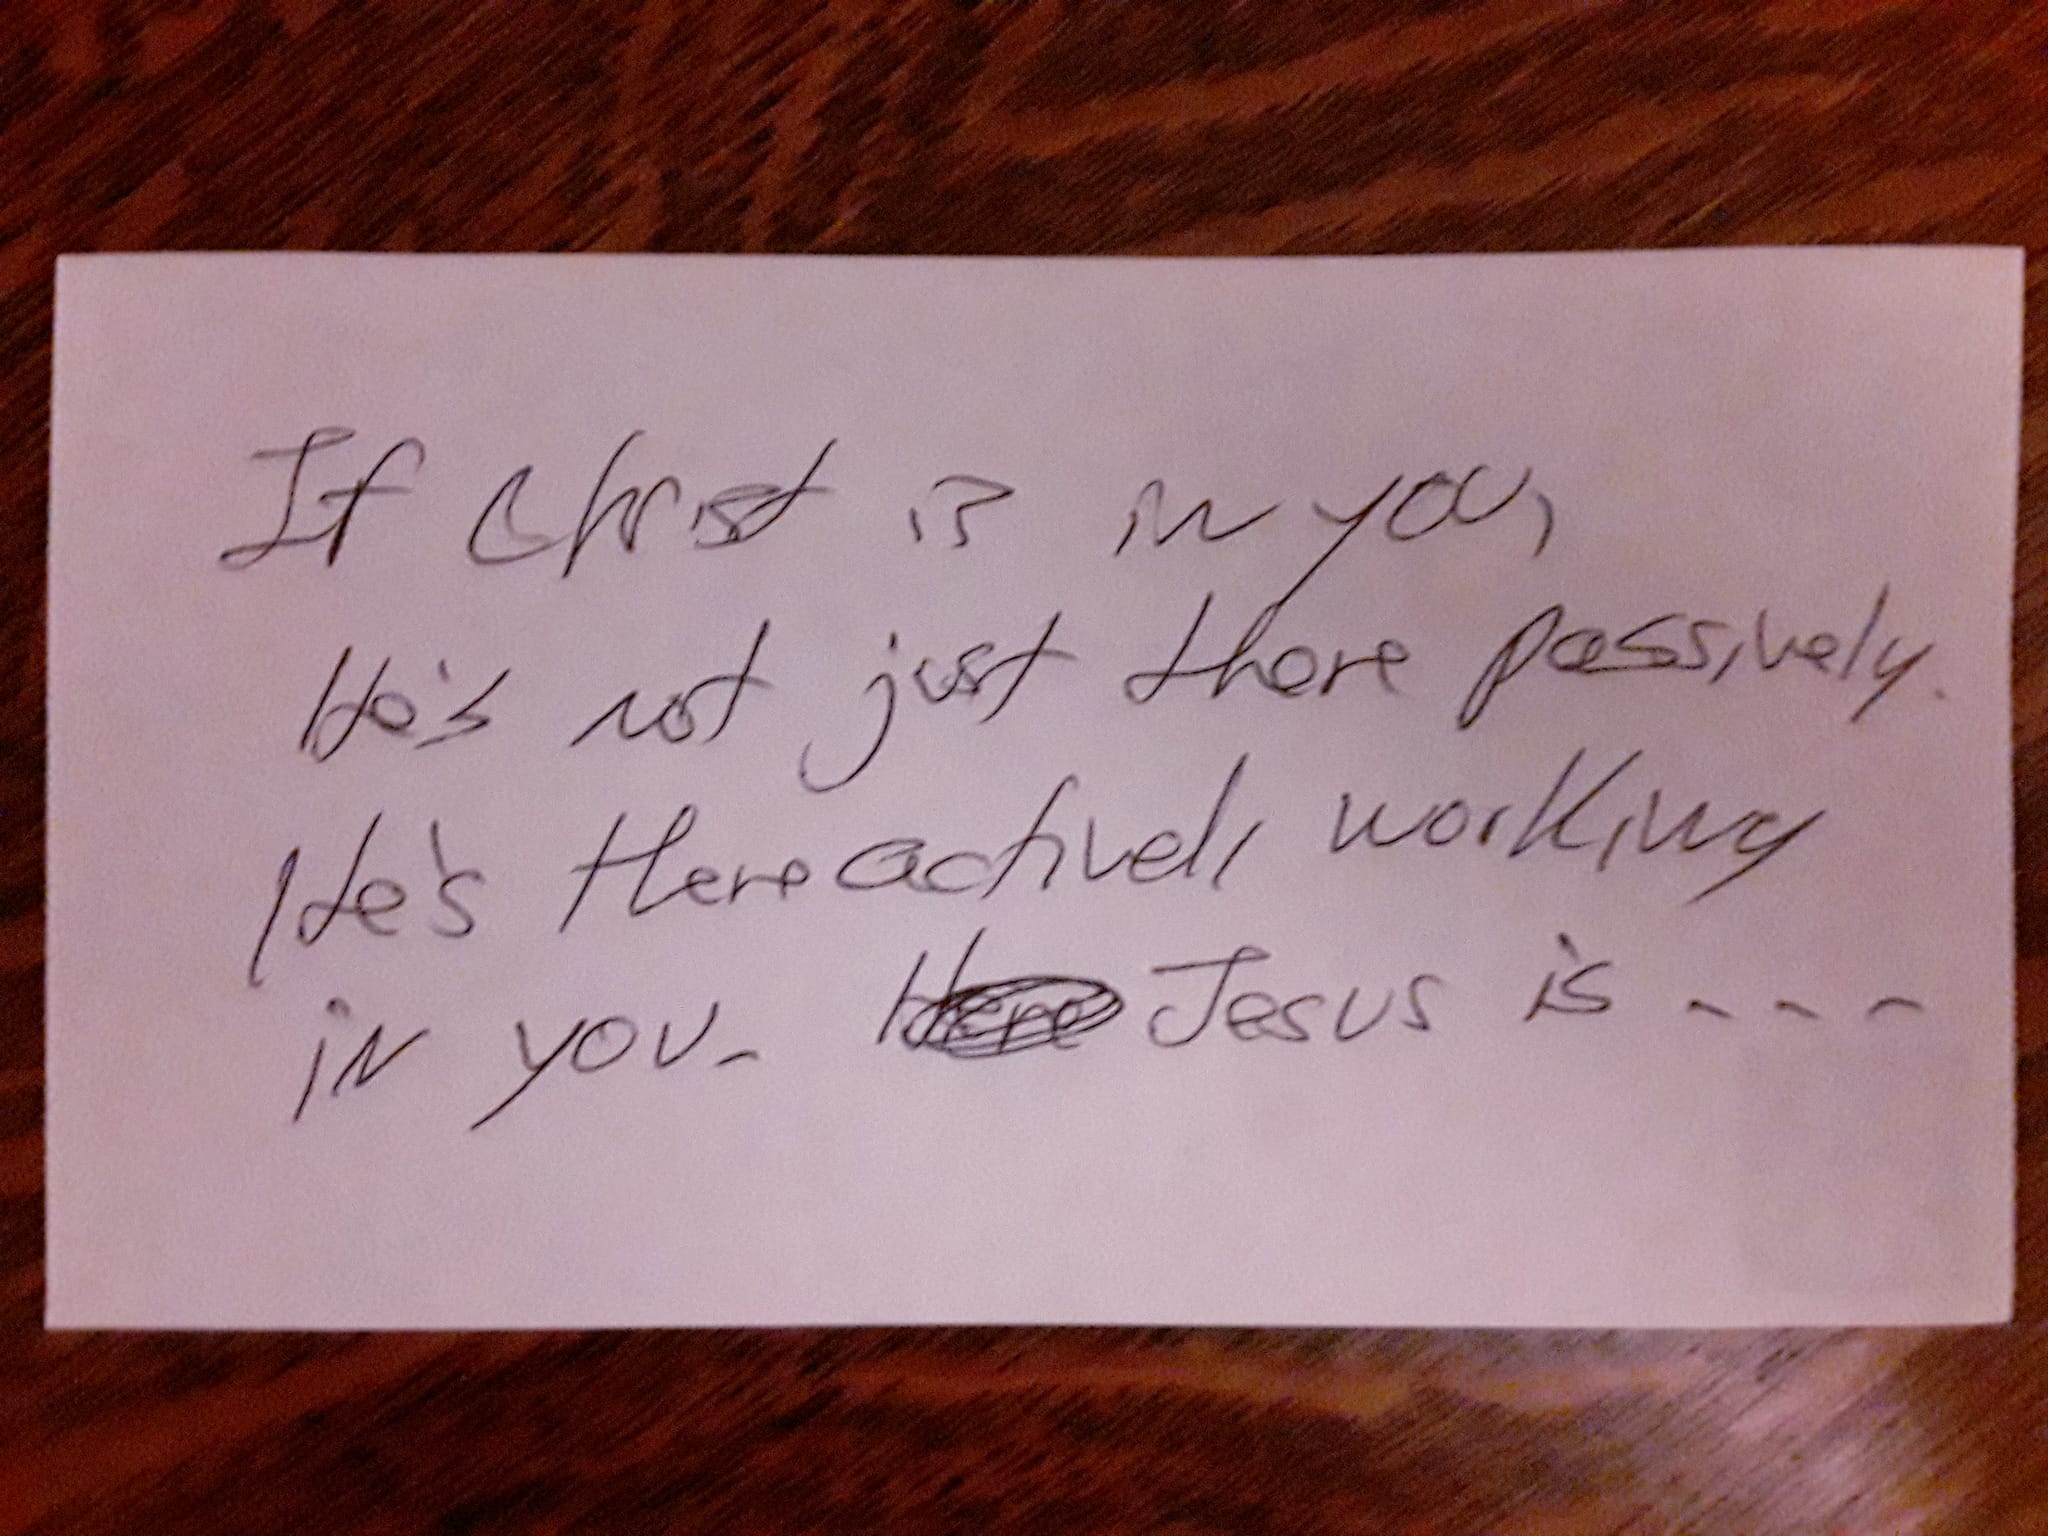 If Christ is in you,
He's not just there passively.
He's there actively working
in you. Jesus is ....